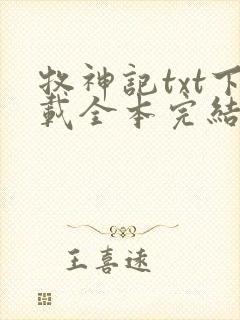 牧神記txt下
載全本完結
王喜遠